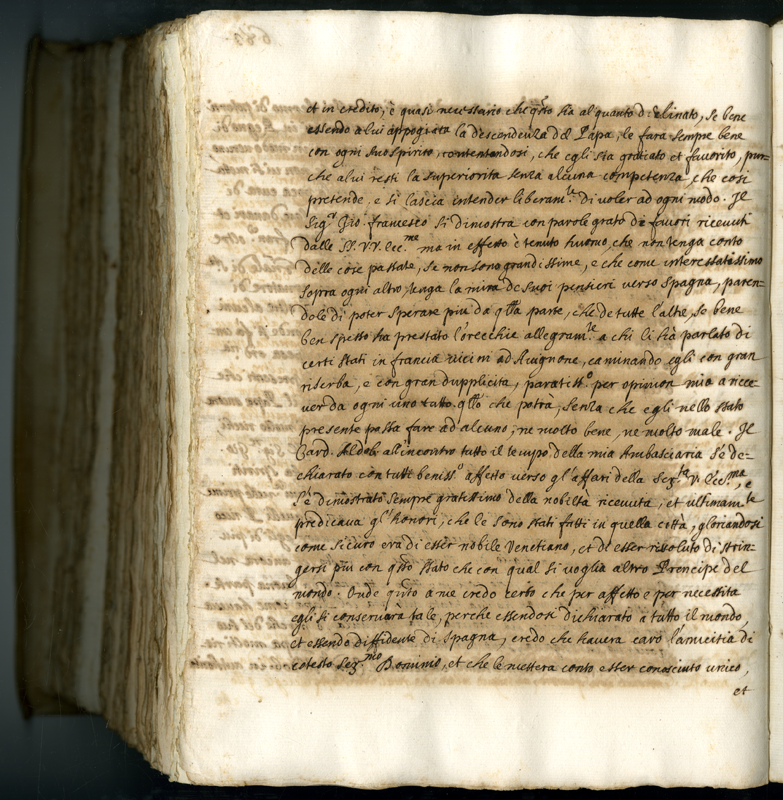 et in credito, è quasi necessario che q.sto sia alquanto declinato, se bene
essendo a lui appogiata la descendenza del Papa, le farà sempre bene
con ogni suo spirito, contentandosi, che egli sia gratiato et favorito, pur-
che a lui resti la superiorità senza alcuna competenza, che così
pretende, e si lascia intender liberam.te di voler ad ogni modo. Il
Sig.r Gio. francesco si dimostra con parole grato de favori ricevuti
dalle SS. VV. Ecc.me ma in effetto è tenuto huomo, che non tenga conto
delle cose passate, se non sono grandissime, e che come interessatissimo
sopra ogni altro, tenga la mira de suoi pensieri verso Spagna, paren-
dole di poter sperare più da q.lla parte, che de tutte l'altre, se bene
ben spesso ha prestato l'orecchie allegram.te a chi li hà parlato di
certi stati in francia vicini ad Avignone, caminando egli con gran
riserba, e con gran dupplicita, paratiss.o per opinion mia a rice-
ver da ogni uno tutto q.llo che potrà, senza che egli nello stato
presente possa fare ad alcuno, ne molto bene, ne molto male. Il
Card. Aldob. all'incontro tutto il tempo della mia Ambasciaria s'è de-
chiarato con tutti beniss.o affetto verso gl'affari della Ser.tà V. Ecc.ma, e
s'è dimostrato sempre gratissimo della nobiltà ricevuta, et ultimam.te
predicava gl'honori, che le sono stati fatti in quella città, gloriandosi
come sicuro era di esser nobile Venetiano, et de esser risoluto di strin-
gersi più con q.sto stato che con qual si voglia altro Prencipe del
mondo. Onde q.sto a me credo certo che per affetto e per necessità
egli si conservarà tale, perche essendosi dichiarato a tutto il mondo,
et essendo diffidente di Spagna, credo che haverà caro l'amicitia di
cotesto Ser.mo Dominio, et che le metterà conto esser conosciuto unico,
et